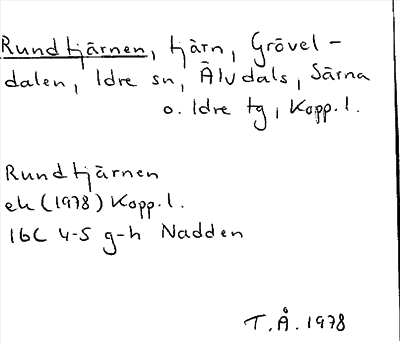 Rundtjärnen, tjärn, Grövel-
dalen, Idre sn, Älvdals, Särna
o. Idre tg, Kopp.l.
Rundtjärnen
ek (1978) Kopp.l.
16C 4-5 g-h Nadden
T.Å. 1978